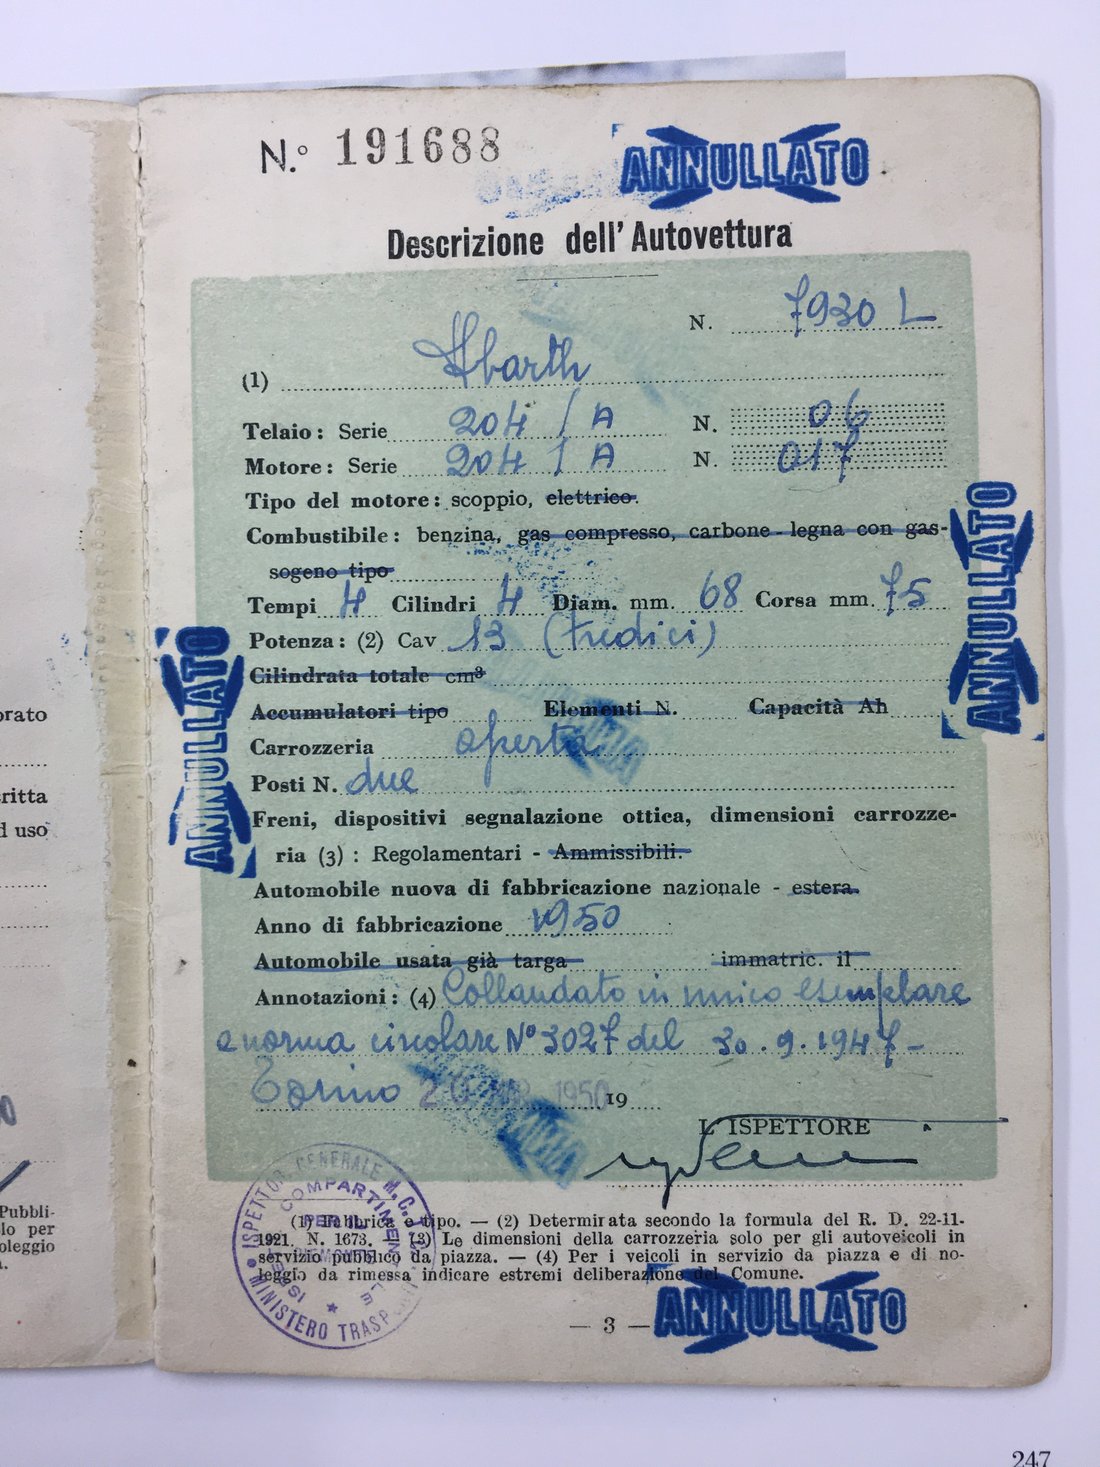 N.º 191688
ANNULLATO
Descrizione dell'Autovettura
N. 7930 L
(1) Abarth
Telaio: Serie 204 / A N. 06
Motore: Serie 204 / A N. 017
Tipo del motore: scoppio, elettrico.
Combustibile: benzina, gas compresso, carbone - legna con gas-
sogeno tipo
Tempi 4 Cilindri 4 Diam. mm. 68 Corsa mm. 75
Potenza: (2) Cav 13 (tredici)
Cilindrata totale cm³
Accumulatori tipo Elementi N. Capacità Ah
Carrozzeria aperta
Posti N. due
Freni, dispositivi segnalazione ottica, dimensioni carrozze-
ria (3): Regolamentari - Ammissibili.
Automobile nuova di fabbricazione nazionale - estera.
Anno di fabbricazione 1950
Automobile usata già targa immatric. il
Annotazioni: (4) Collaudato in unico esemplare
a norma circolare Nº 3027 del 30.9.1947 -
Torino 20 1950 19
L'ISPETTORE
(1) Fabbrica e tipo. — (2) Determinata secondo la formula del R. D. 22-11-
1921. N. 1673. — (3) Le dimensioni della carrozzeria solo per gli autoveicoli in
servizio pubblico da piazza. — (4) Per i veicoli in servizio da piazza e di no-
leggio da rimessa indicare estremi deliberazione del Comune.
— 3 —
ANNULLATO
ANNULLATO
ANNULLATO
ISPETTOR. GENERALE M. C. T. C.
MINISTERO TRASPORTI
COMPARTIMENTALE
PER IL
PIEMONTE
orato
critta
d uso
Pubbli-
lo per
oleggio
247